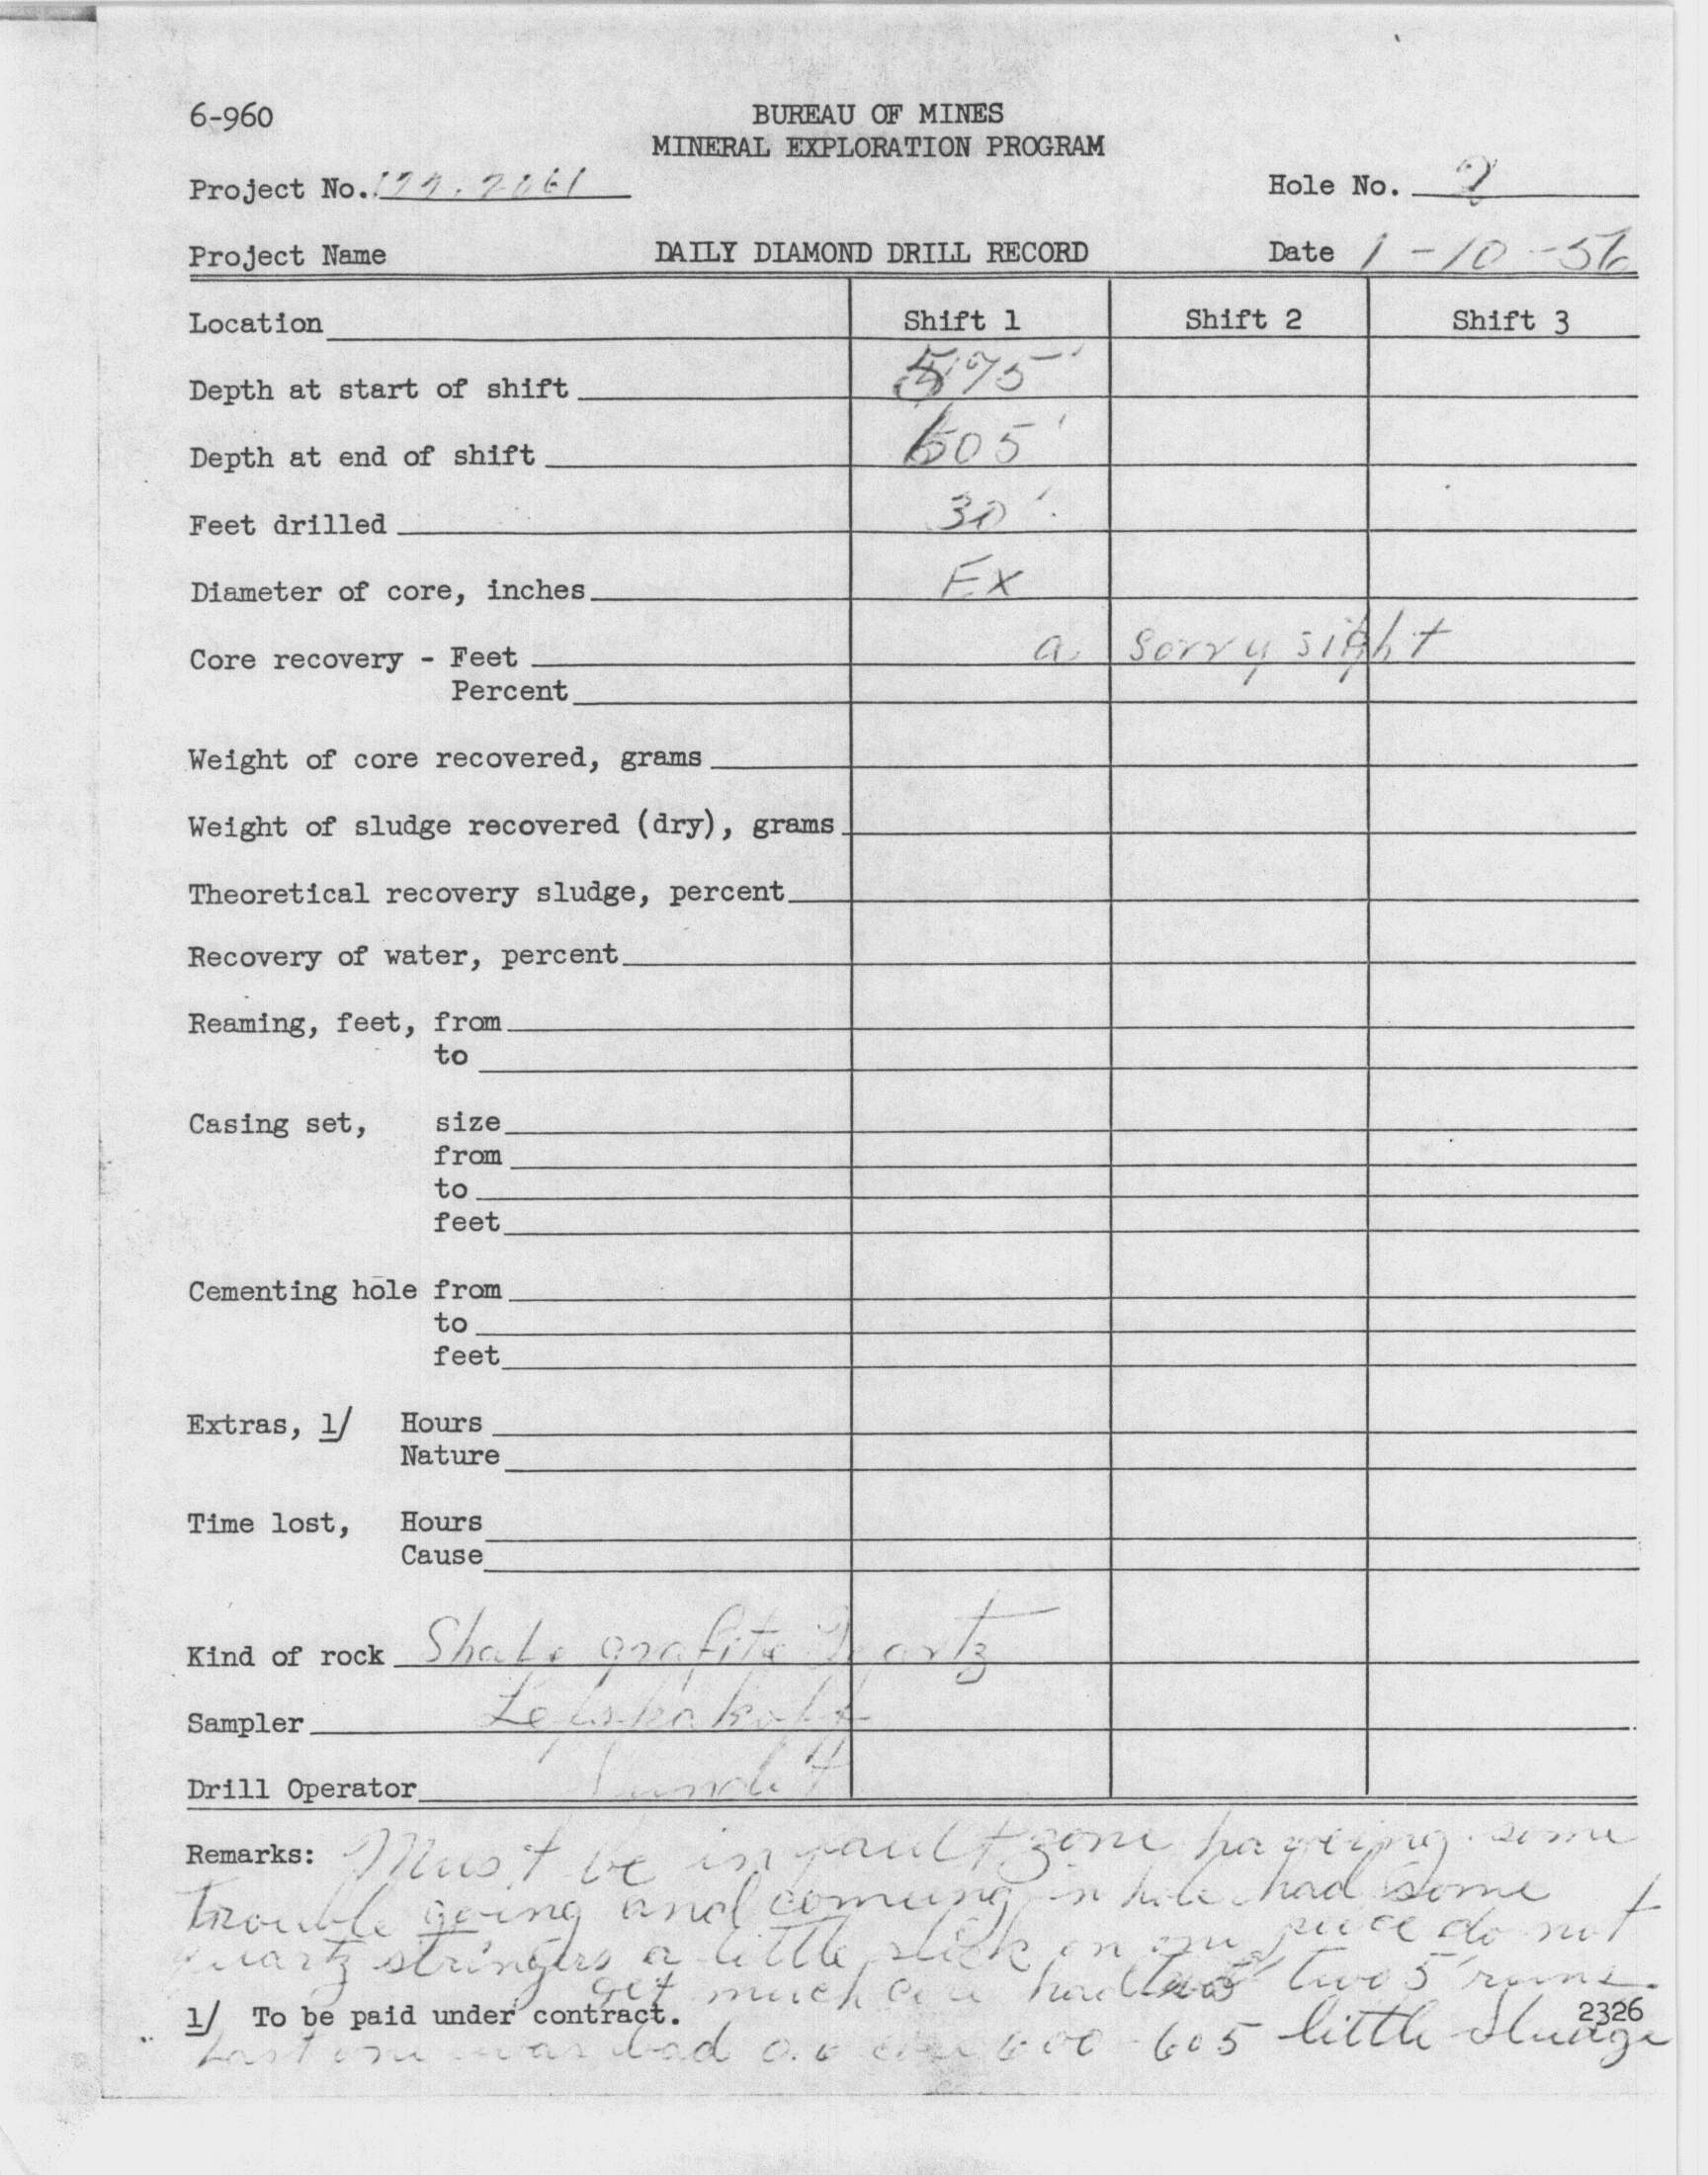 6-960
BUREAU OF MINES
MINERAL EXPLORATION PROGRAM
Project No. Hole No. 2
Project Name DAILY DIAMOND DRILL RECORD Date 1-10-56
Location Shift 1 Shift 2 Shift 3
Depth at start of shift 575'
Depth at end of shift 605'
Feet drilled 30'
Diameter of core, inches Ex
Core recovery - Feet a sorry sight
Percent
Weight of core recovered, grams
Weight of sludge recovered (dry), grams
Theoretical recovery sludge, percent
Recovery of water, percent
Reaming, feet, from
to
Casing set, size
from
to
feet
Cementing hole from
to
feet
Extras, 1/ Hours
Nature
Time lost, Hours
Cause
Kind of rock Shale grafite Quartz
Sampler
Drill Operator
Remarks: Must be in fault zone having some
trouble going and comeing in hole had some
quartz stringers a little slick on one piece do not
get much core had two 5' runs.
1/ To be paid under contract. 2326
Last one was bad 0.0 core 600-605 little sludge